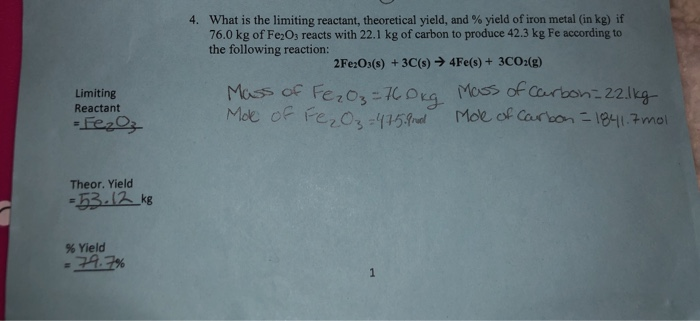 4. What is the limiting reactant, theoretical yield, and % yield of iron metal (in kg) if
76.0 kg of Fe₂O₃ reacts with 22.1 kg of carbon to produce 42.3 kg Fe according to
the following reaction:
2Fe₂O₃(s) + 3C(s) → 4Fe(s) + 3CO₂(g)
Limiting
Reactant
= Fe₂O₃
Mass of Fe₂O₃ = 76.0kg Mass of Carbon = 22.1kg
Mole of Fe₂O₃ = 475.9mol Mole of Carbon = 1841.7mol
Theor. Yield
= 53.12 kg
% Yield
= 79.7%
1